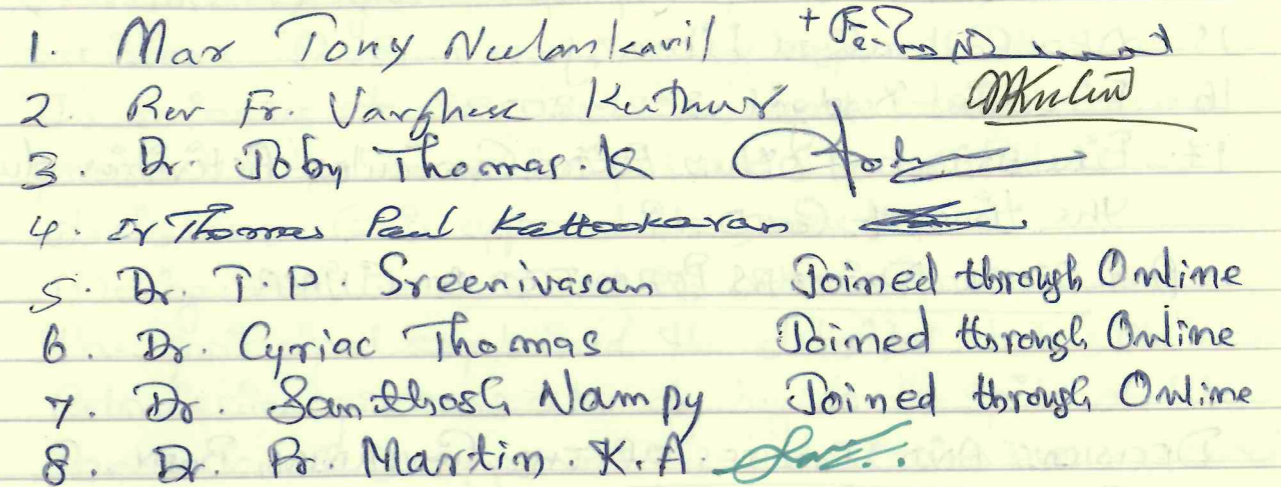 1. Mar Tony Neelankavil
2. Rev Fr. Varghese Kuthur
3. Dr. Joby Thomas. K
4. Dr Thomas Paul Kattookaran
5. Dr. T. P. Sreenivasan Joined through Online
6. Dr. Cyriac Thomas Joined through Online
7. Dr. Santhosh Nampy Joined through Online
8. Dr. Fr. Martin. K. A